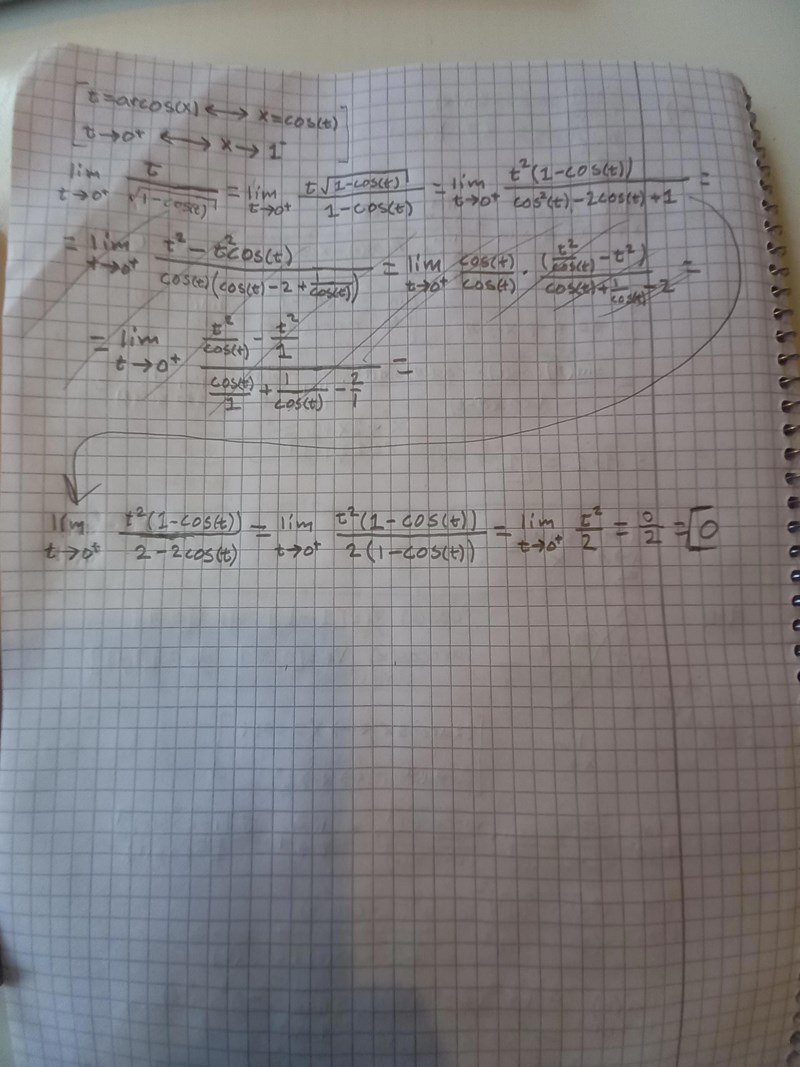 [t=arcos(x) ↔ x=cos(t)
t→0⁺ ↔ x→1⁻]
lim t→0⁺ t/√(1-cos(t)) = lim t→0⁺ t√(1-cos(t))/(1-cos(t)) = lim t→0⁺ t²(1-cos(t))/(cos²(t)-2cos(t)+1) =
= lim t→0⁺ (t²-t²cos(t))/(cos(t)(cos(t)-2+1/cos(t))) = lim t→0⁺ cos(t)/cos(t) · (t²/cos(t)-t²)/(cos(t)+1/cos(t)-2) =
= lim t→0⁺ (t²/cos(t) - t²/1)/(cos(t)/1 + 1/cos(t) - 2/1) =
lim t→0⁺ t²(1-cos(t))/(2-2cos(t)) = lim t→0⁺ t²(1-cos(t))/(2(1-cos(t))) = lim t→0⁺ t²/2 = 0/2 = 0